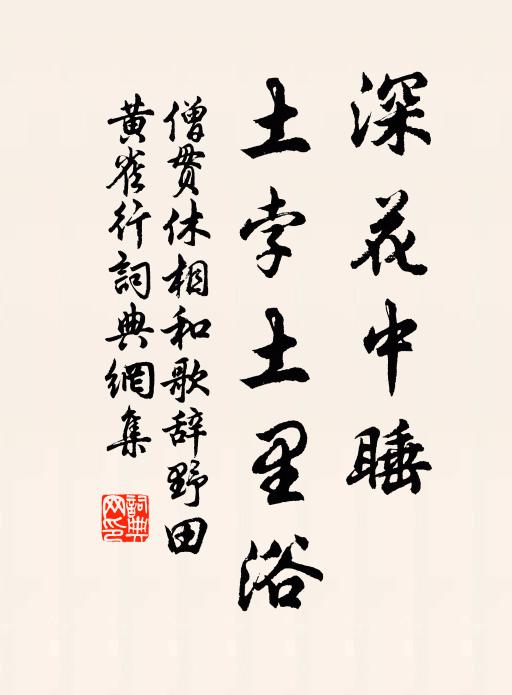 深花中睡
土孛土里浴
僧贯休相和歌辞野田
黄雀行詞典網集
詞典
网印